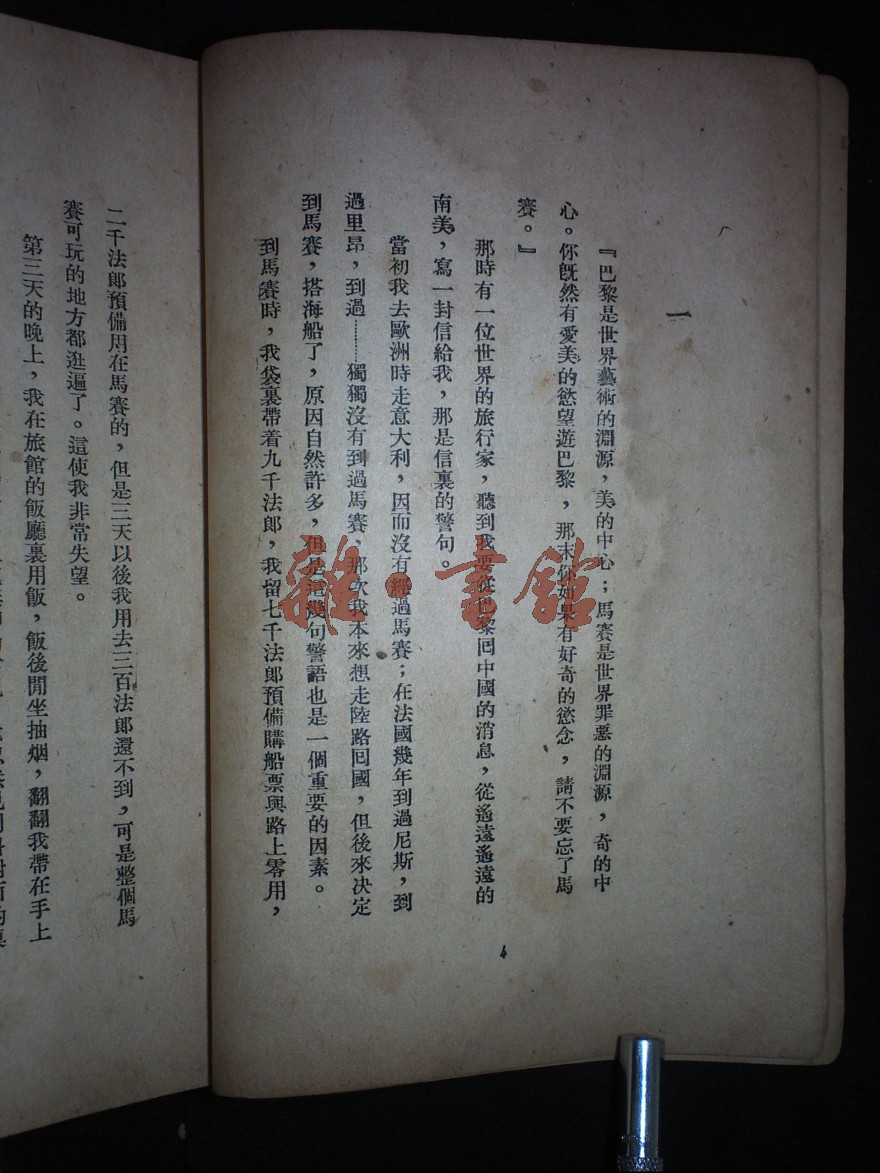 一
『巴黎是世界藝術的淵源，美的中心；馬賽是世界罪惡的淵源，奇的中
心。你旣然有愛美的慾望遊巴黎，那末你如果有好奇的慾念，請不要忘了馬
賽。』
那時有一位世界的旅行家，聽到我要從巴黎囘中國的消息，從遙遠遙遠的
南美，寫一封信給我，那是信裏的警句。
當初我去歐洲時走意大利，因而沒有經過馬賽；在法國幾年到過尼斯，到
過里昂，到過………獨獨沒有到過馬賽，那次我本來想走陸路囘國，但後來決定
到馬賽，搭海船了，原因自然許多，但是這幾句警語也是一個重要的因素。
到馬賽時，我袋裏帶着九千法郎，我留七千法郎預備購船票與路上零用，
二千法郎預備用在馬賽的，但是三天以後我用去三百法郎還不到，可是整個馬
賽可玩的地方都逛遍了。這使我非常失望。
第三天的晚上，我在旅館的飯廳裏用飯，飯後閒坐抽烟，翻翻我帶在手上
雜·書館